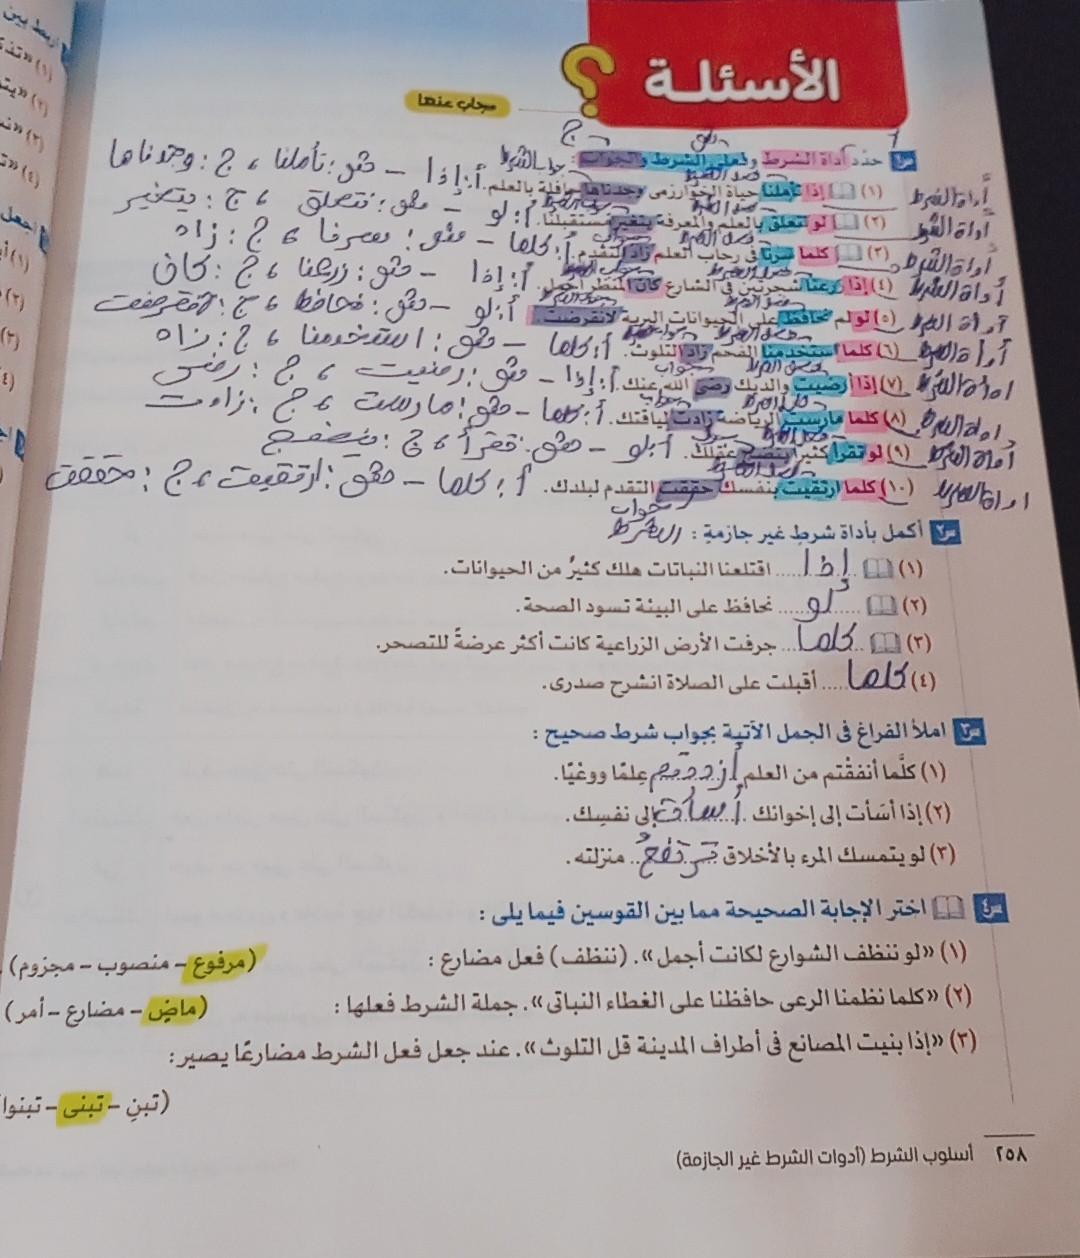 الأسئلة
؟
مجاب عنها
س١ حدد أداة الشرط وفعلى الشرط والجواب :
(١) إذا تأملنا حياة الخوارزمى وجدناها حافلة بالعلم. أ: إذا - ش: تأملنا ، ج: وجدناها
أداة الشرط
(٢) لو نتعلق بالعلم والمعرفة يتغير مستقبلنا. أ: لو - نتعلق ، ج: يتغير
أداة الشرط
(٣) كلما سرنا فى رحاب العلم زاد التقدم. أ: كلما - سرنا ، ج: زاد
أداة الشرط
(٤) إذا زرعنا شجرتين فى الشارع كان المنظر أجمل. أ: إذا - زرعنا ، ج: كان
أداة الشرط
(٥) لو لم نحافظ على الحيوانات البرية لانقرضت. أ: لو - نحافظ ، ج:
أداة الشرط
(٦) كلما استخدمنا الفحم زاد التلوث. أ: كلما - استخدمنا ، ج: زاد
أداة الشرط
(٧) إذا أرضيت والديك رضى الله عنك. أ: إذا -
أداة الشرط
(٨) كلما مارست الرياضة زادت لياقتك. أ: كلما - مارست ، ج: زادت
أداة الشرط
(٩) لو تقرأ كثيرًا ينضج عقلك. أ: لو - تقرأ ، ج: ينضج
أداة الشرط
(١٠) كلما ارتقيت بنفسك حققت التقدم لبلدك. أ: كلما - ارتقيت ، ج: حققت
أداة الشرط
جواب الشرط
س٢ أكمل بأداة شرط غير جازمة :
(١) ...إذا... اقتلعنا النباتات هلك كثيرٌ من الحيوانات.
(٢) ...لو... نحافظ على البيئة تسود الصحة.
(٣) ...كلما... جرفت الأرض الزراعية كانت أكثر عرضةً للتصحر.
(٤) كلما... أقبلت على الصلاة انشرح صدرى.
س٣ املأ الفراغ فى الجمل الآتية بجواب شرط صحيح :
(١) كلَّما أنفقْتم من العلم أزددتم عِلمًا ووعْيًا.
(٢) إذا أسَأت إلى إخوانك ...أسأت إلى نفسِك.
(٣) لو يتمسك المرء بالأخلاق ترتفعُ.. منزلته.
س٤ اختر الإجابة الصحيحة مما بين القوسين فيما يلى :
(١) «لو ننظف الشوارع لكانت أجمل». (ننظف) فعل مضارع : (مرفوع - منصوب - مجزوم)
(٢) «كلما نظمنا الرعى حافظنا على الغطاء النباتى». جملة الشرط فعلها : (ماضٍ - مضارع - أمر)
(٣) «إذا بنيت المصانع فى أطراف المدينة قل التلوث». عند جعل فعل الشرط مضارعًا يصير :
(تبنِ - تبنى - تبنوا
٢٥٨ أسلوب الشرط (أدوات الشرط غير الجازمة)